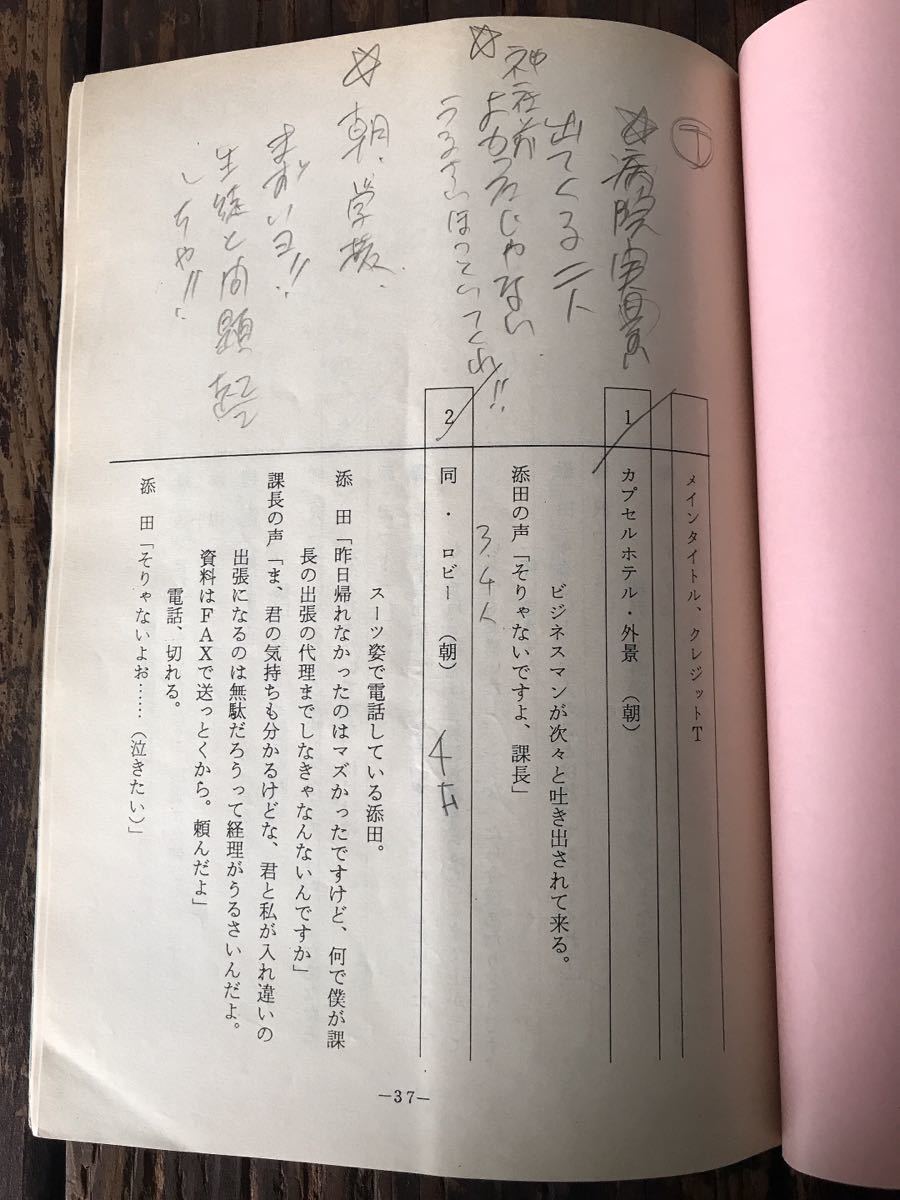 T
☆病院
出てくる二人
☆神社前
よかったじゃない
うるさいほっといてくれ!!
☆朝、学校、
まずいヨ!!
生徒と問題起こ
しちゃ!!
メインタイトル、クレジットT
1 カプセルホテル・外景 (朝)
ビジネスマンが次々と吐き出されて来る。
添田の声「そりゃないですよ、課長」
3.4人
2 同・ロビー (朝)
スーツ姿で電話している添田。
添 田「昨日帰れなかったのはマズかったですけど、何で僕が課
長の出張の代理までしなきゃなんないんですか」
課長の声「ま、君の気持ちも分かるけどな、君と私が入れ違いの
出張になるのは無駄だろうって経理がうるさいんだよ。
資料はFAXで送っとくから。頼んだよ」
電話、切れる。
添 田「そりゃないよぉ……(泣きたい)」
—37—